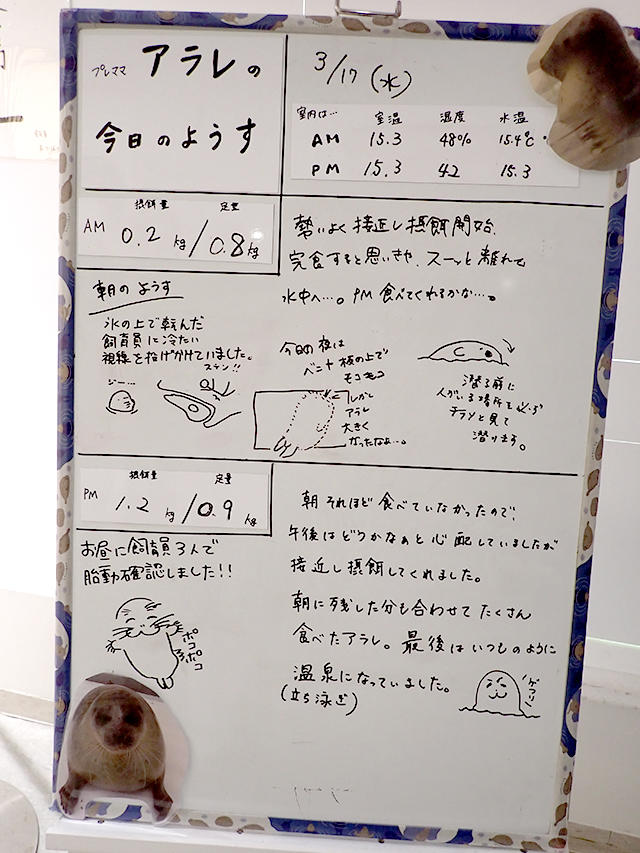 プレママ アラレの
今日のようす
3/17 (水)
室内は… 室温 湿度 水温
AM 15.3 48% 15.4℃
PM 15.3 42 15.3
摂餌量 定量
AM 0.2kg/0.8kg
勢いよく接近し摂餌開始、
完食すると思いきや、スーッと離れて
水中へ…。PM 食べてくれるかな…。
朝のようす
氷の上で転んだ
飼育員に冷たい
視線を投げかけていました。
ステン!!
ジー…
今日の夜は
ベニヤ板の上で
モコモコ
しかし
アラレ
大きく
なったなよ…。
潜る前に
人がいる場所を必ず
チラッと見て
潜ります。
摂餌量 定量
PM 1.2kg/0.9kg
お昼に飼育員3人で
胎動確認しました!!
ポコポコ
朝それほど食べていなかったので、
午後はどうかなぁと心配していましたが
接近し摂餌してくれました。
朝に残した分も合わせてたくさん
食べたアラレ。最後はいつものように
温泉になっていました。
(立ち泳ぎ)